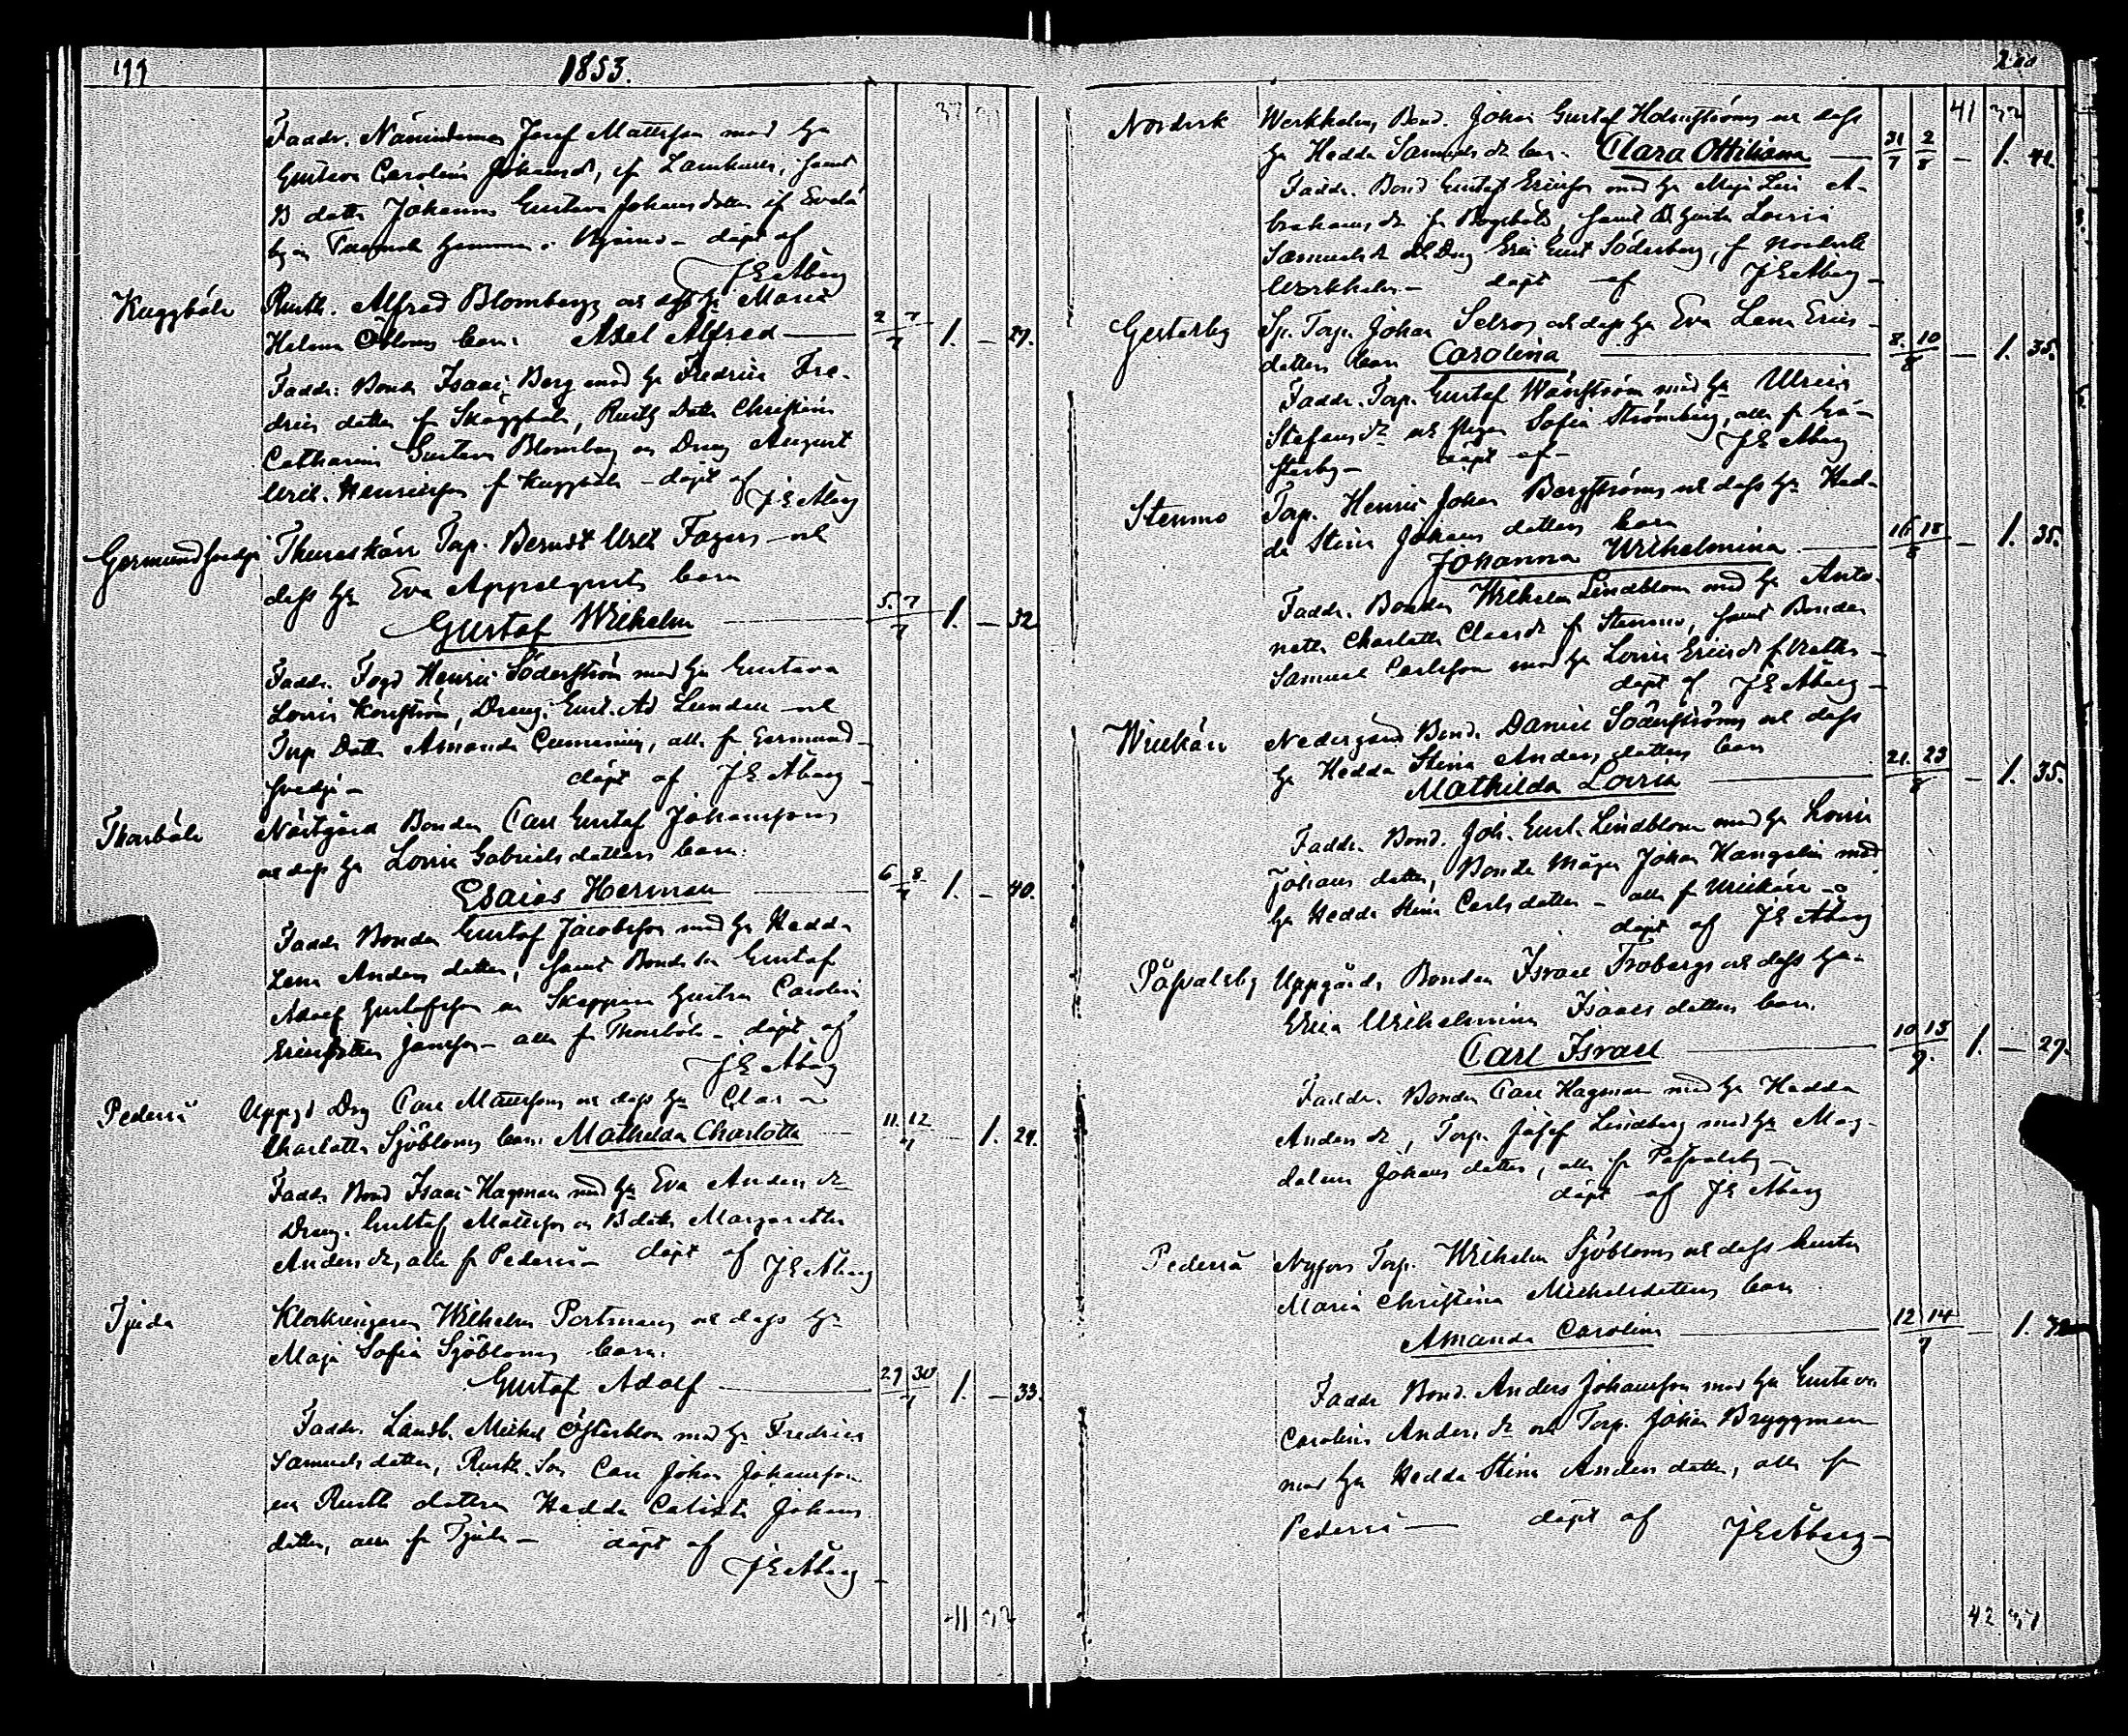 199
1853.
Faddr. Nämndeman Josef Mattsson med h:u
Gustava Carolina Johansd:r, fr., samt
B dottr Johanna Gustava Johansdotter if
döpt af
J E Åberg
Kuggböle Rusth. Alfred Blombergs och dess h:u Maria
Helena Öbloms barn. Axel Alfred 2 7/7 1. – 27.
Faddr: Bonde Isaac Berg med h:u Fredrica Fre-
drics dotter fr Skäggböle, Rusth Dottr Christina
Catharina Gustava Blomberg o Dreng August
Wilh. Henricsson fr Kuggböle – döpt af
J E Åberg
Germundsvedja Thuraskärr Torp. Berndt Wilh Fagers och
dess h:u Eva Appelqvists barn
Gustaf Wilhelm 5. 7/7 1. – 32
Faddr. Fogd Henric Söderström med h:u Gustava
Lovisa, Dreng. Gust. Ad Lundén och
Torp Dottr Amanda, alla fr Germund-
svedja – döpt af J E Åberg
Thorböle Norrgård Bonden Carl Gustaf Johanssons
och dess h:u Lovisa Gabrielsdotters barn:
Esaias Herman 6 8/7 1. – 40.
Faddr Bonden Gustaf Jacobsson med h:u Hedda
Lena Andersdotter, samt Bonde son Gustaf
Adolf Gustafsson o Skepparen hustru Carolina
Ericsdotter Jansson – alla fr Thorböle – döpt af
J E Åberg
Pederså Uppgd Drg Carl Mattssons och dess h:u Clara
Charlotta Sjöbloms barn. Mathilda Charlotta 11. 12/7 – 1. 24.
Faddr Bond Isaac Hagman med h:u Eva Andersd:r
Dreng. Gustaf Mattsson o B dottr Margaretha
Andersdr, alla fr Pederså – döpt af J E Åberg
Tjuda Klockringaren Wilhelm Portmans och dess h:u
Maja Sofia Sjöbloms barn.
Gustaf Adolf 29 30/7 1. – 33.
Faddr. Landb. Michel Österblom med h:u Fredrica
Samuelsdotter, Rusth. Son Carl Johan Johansson
och Rusth dottren Hedda Calista Johans
dotter, alla fr Tjuda – döpt af
J E Åberg
41 32
200
41 32
Nordvik Werkholms Bond. Johan Gustaf Holmströms och dess
h:u Hedda Samuelsdr barn. Clara Ottiliana 31/7 2/8 – 1. 41.
Faddr. Bond Gustaf Ericsson med h:u Maja Lisa A-
brahamsdr fr Bogsböle, samt Lovisa
Samuelsdr o Drg Eric Gust Söderberg, fr Nordvik
Werkholm – döpt af J E Åberg –
Gesterby Sp. Torp. Johan Selros och dess h:u Eva Lena Erics-
dotters barn Carolina 8. 10/8 – 1. 35.
Faddr. Torp. Gustaf Wänström med h:u Ulrica
Stefansdr och pigan Sofia Strömberg, alla fr Gä-
sterby – döpt af – J E Åberg
Stenmo Torp. Henric Johan Bergströms och dess h:u Hed-
da Stina Johansdotters barn
Johanna Wilhelmina 16 18/8 – 1. 35.
Faddr. Bonden Wilhelm Lindblom med h:u Anto-
netta Charlotta Claesdr fr Stenmo, samt Bonden
Samuel Carlsson med h:u Lovisa Ericsdr fr
döpt af J E Åberg –
Wreekärr Nedergård Bond. Daniel Söderströms och dess
h:u Hedda Stina Andersdotters barn
Mathilda Lovisa 21. 23/8 – 1. 35.
Faddr. Bond. Joh. Gust. Lindblom med h:u Lovisa
Johansdotter, Bonde Mågen Johan Hangelin med
h:u Hedda Stina Carlsdotter – alla fr Wreekärr –
döpt af J E Åberg
Påpvalsby Uppgårds Bonden Israel Frobergs och dess h:u
Erica Wilhelmina Isaacsdotters barn.
Carl Israel 10 15/9. 1. – 27.
Faddr. Bonden Carl Hagman med h:u Hedda
Andersdr, Torp. Josef Lindberg med h:u Mag-
dalena Johansdotter, alla fr Påpvalsby –
döpt af J E Åberg
Pederså Nyfors Torp. Wilhelm Sjöbloms och dess hustru
Maria Christina Michelsdotters barn
Amanda Carolina 12 14/9 – 1.
Faddr Bond. Anders Johansson med h:u Gustava
Carolina Andersdr och Torp. Johan Bryggman
med h:u Hedda Stina Andersdotter, alla fr
Pederså – döpt af J E Åberg –
42 37